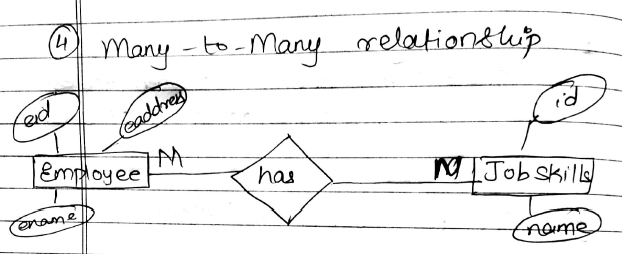 ④ Many-to-Many relationship
eid
eaddress
id
Employee M has M Jobskills
ename
name